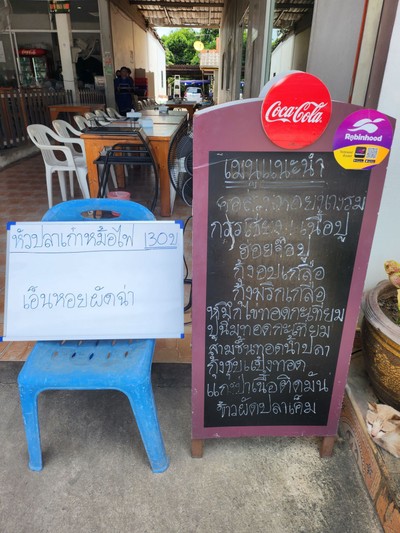 หัวปลาเก๋าหม้อไฟ 130บ
เอ็นหอยผัดฉ่า
Coca-Cola
Robinhood
เมนูแนะนำ
กุ้งอบเกลือ
กุ้งพริกเกลือ
หมึกไข่ทอดกระเทียม
ปูนิ่มทอดกระเทียม
สามชั้นทอดน้ำปลา
กุ้งชุบแป้งทอด
แกะเนื้อติดมัน
ข้าวผัดปลาเค็ม